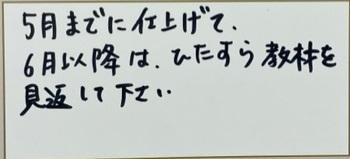 5月までに仕上げて、
6月以降は、ひたすら教材を
見返して下さい